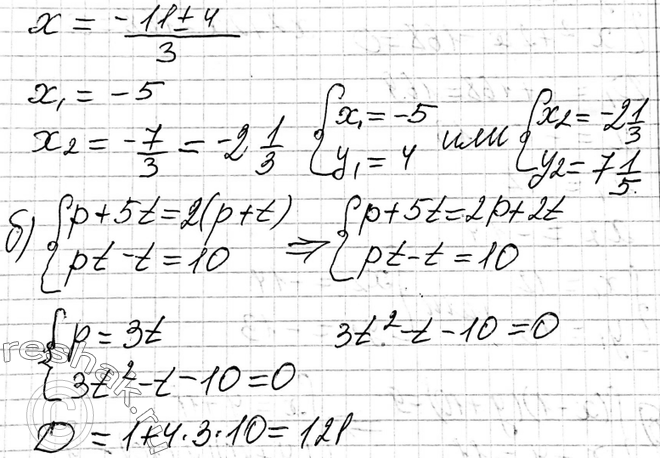 x = (-11 ± 4)/3
x₁ = -5
x₂ = -7/3 = -2 1/3 { x₁ = -5 или { x₂ = -2 1/3
y₁ = 4 y₂ = 7 1/5
б) { p + 5t = 2(p + t) ⇒ { p + 5t = 2p + 2t
pt - t = 10 pt - t = 10
{ p = 3t 3t² - t - 10 = 0
3t² - t - 10 = 0
D = 1 + 4·3·10 = 121
reshak.ru